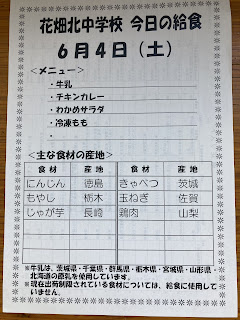 花畑北中学校 今日の給食
6月4日（土）
＜メニュー＞
・牛乳
・チキンカレー
・わかめサラダ
・冷凍もも
・
＜主な食材の産地＞
食材 産地 食材 産地
にんじん 徳島 きゃべつ 茨城
もやし 栃木 玉ねぎ 佐賀
じゃが芋 長崎 鶏肉 山梨
※牛乳は、茨城県・千葉県・群馬県・栃木県・宮城県・山形県・
北海道の原乳を使用しています。
※現在出荷制限されている食材については、給食に使用して
いません。